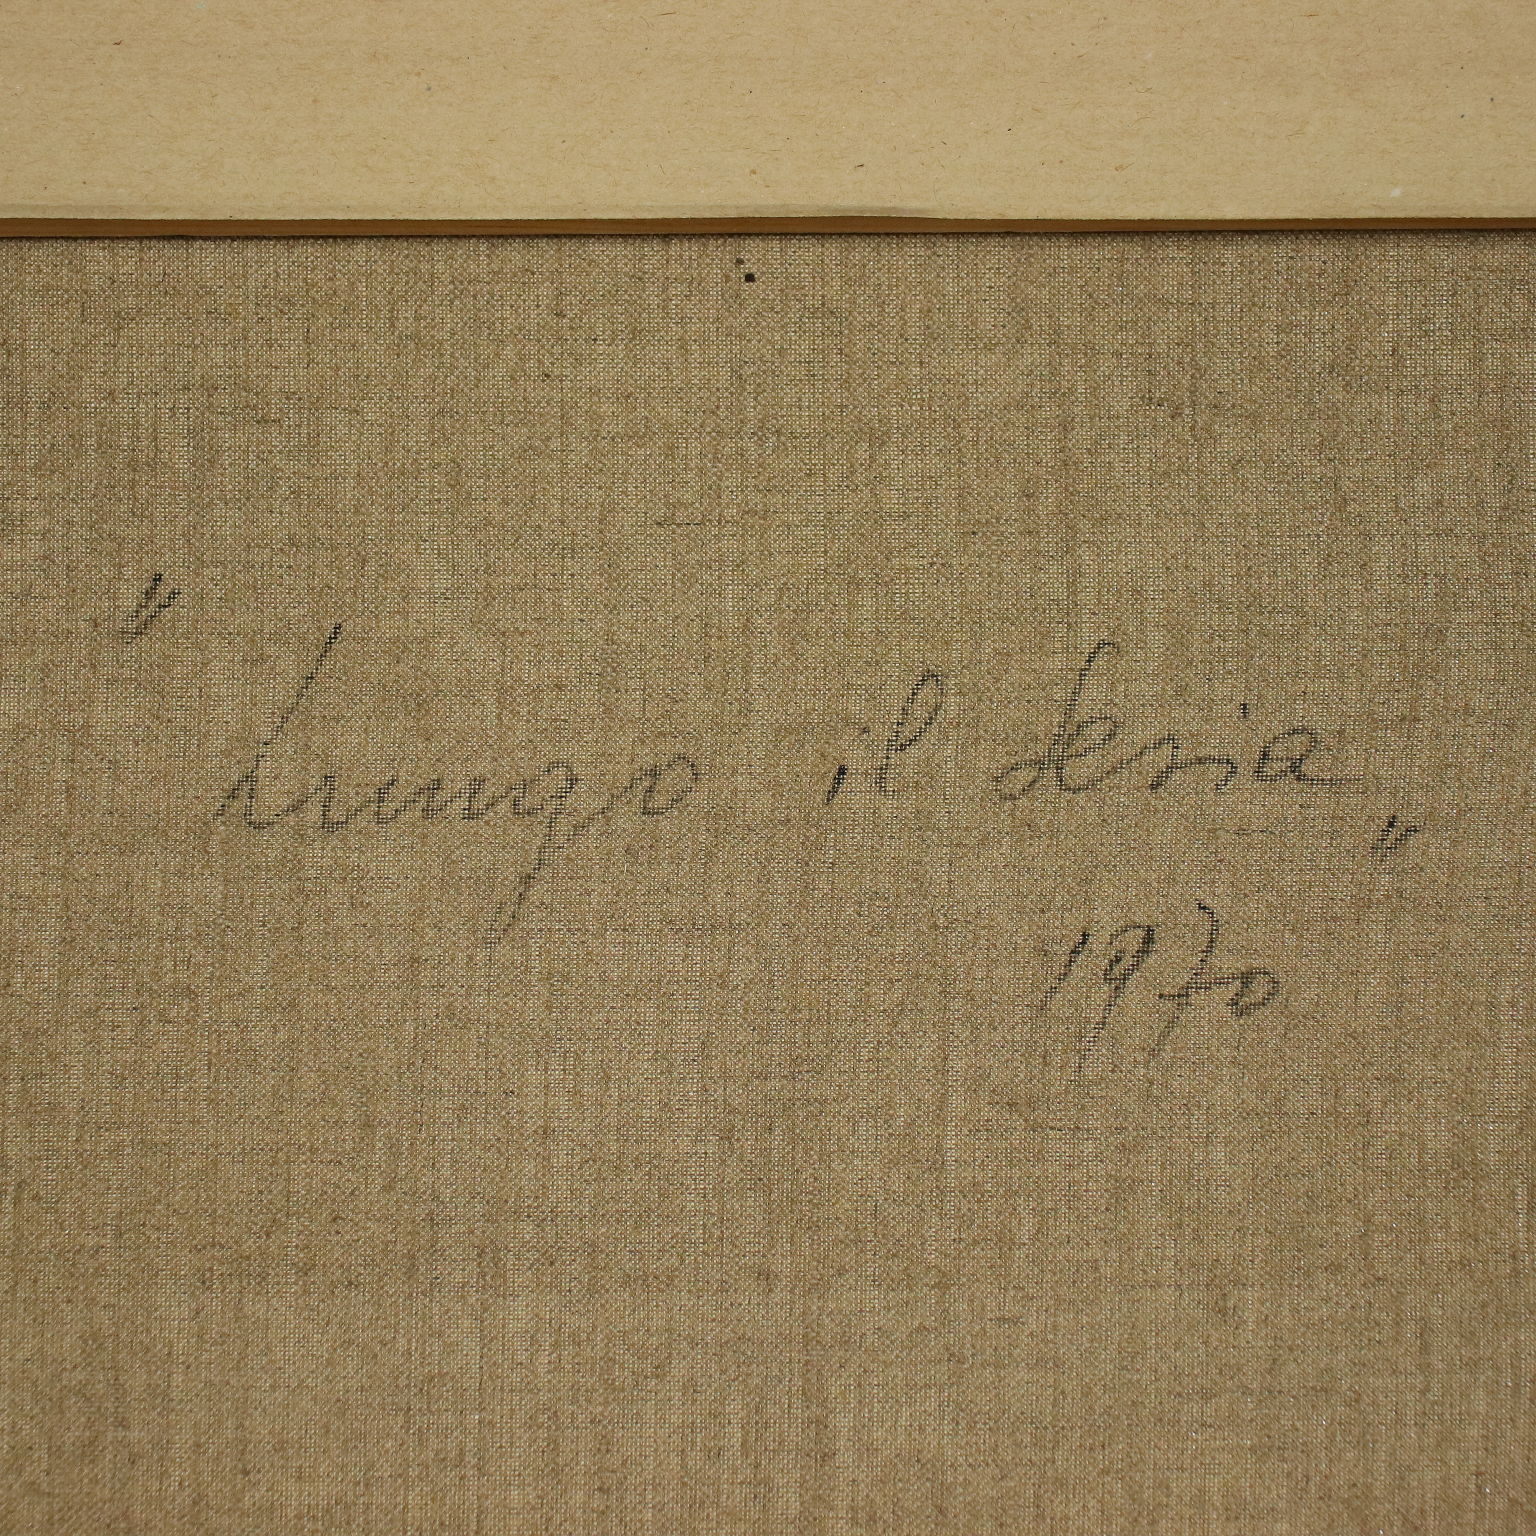 "Lungo il Sesia"
1970